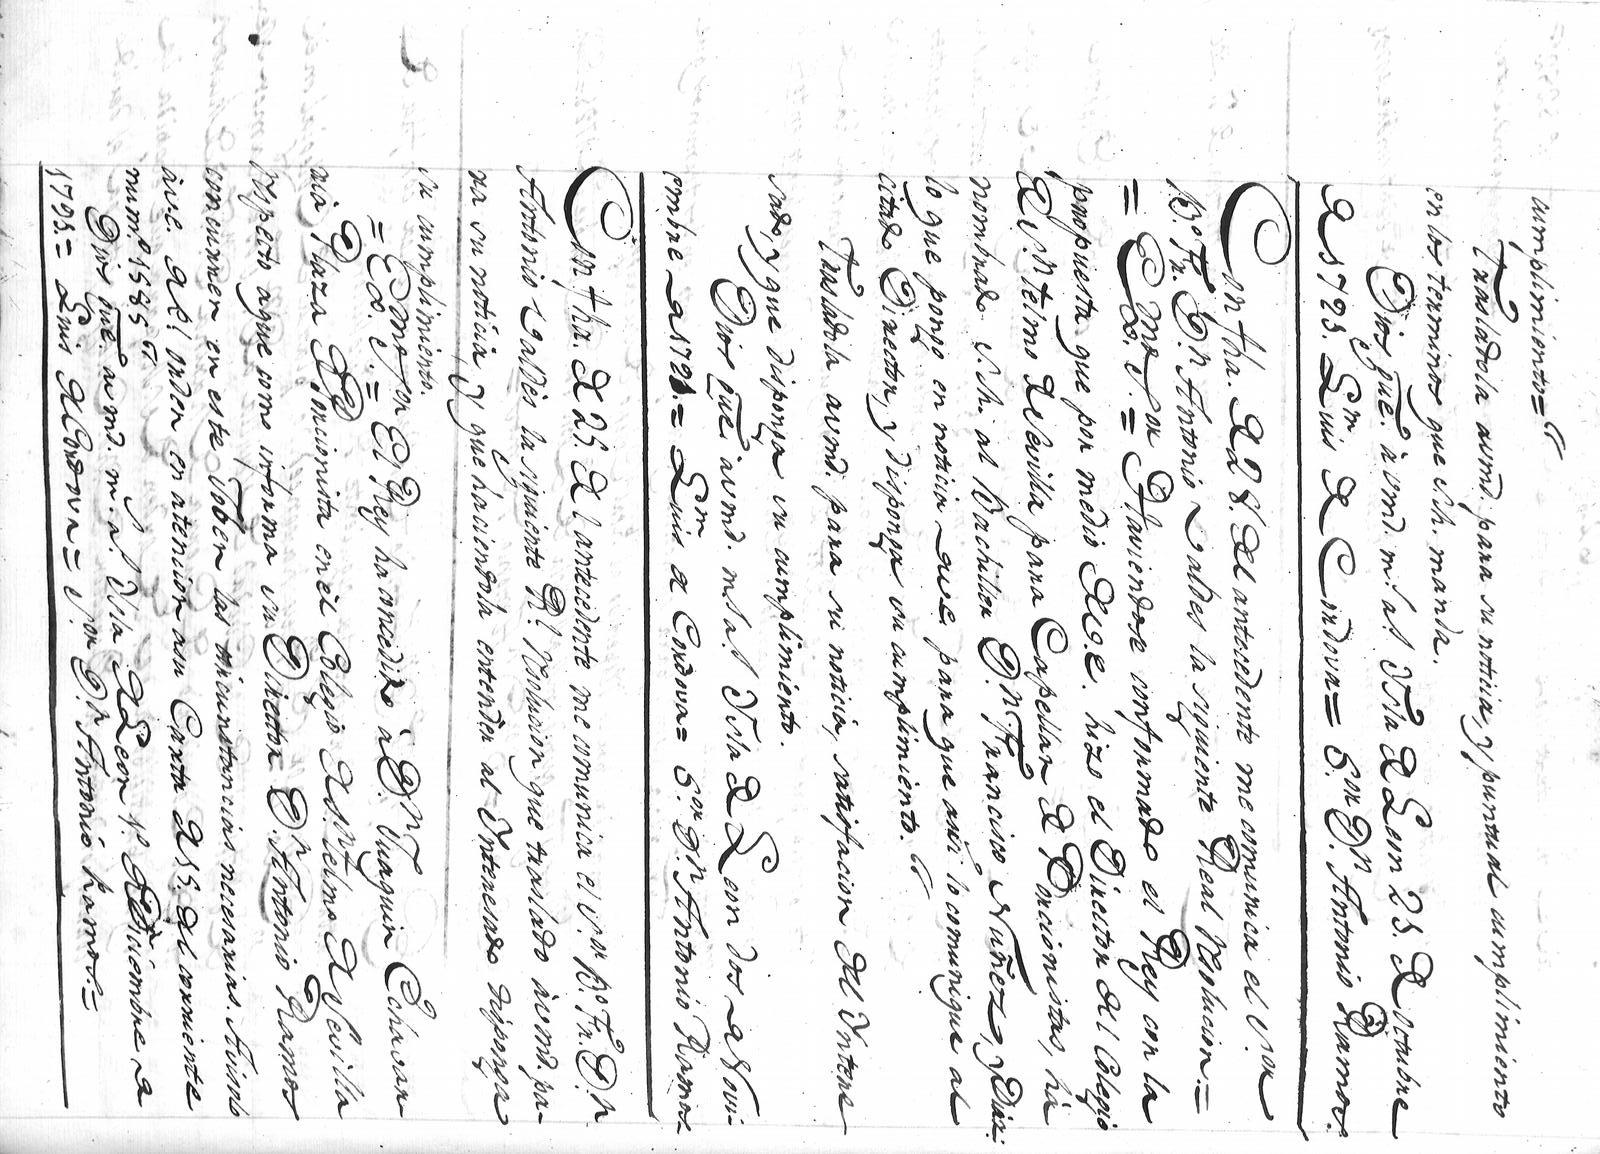 cumplimiento=
Trasladola avmd. para su noticia, y puntual cumplimiento
en los terminos que S.M. manda.
Dios gue. à vmd. m.s a.s Ysla de Leon 25. de Octubre
de 1793. Luis de Cordova= S.or D.n Antonio Ramos.
Con fha. de 28. del antecedente me comunica el S.or
B.o Fr. D.n Antonio Valdes la siguiente Real Resolucion=
= Exmo. S.or = Haviendose conformado el Rey con la
propuesta que por medio de V.e. hizo el Director del Colegio
de S.n Telmo de Sevilla para Capellan de Porcionistas, ha
nombrado S.M. al Bachiller D.n Francisco Nuñez, y Diaz:
lo que pongo en noticia de V.e. para que asi lo comunique al
citado Director, y disponga su cumplimiento.
Trasladola avmd. para su noticia, satisfacion del Intere
sado, y que disponga su cumplimiento.
Dios gue. avmd. m.s a.s Ysla de Leon dos de Novi-
embre de 179 = Luis de Cordova= S.or D.n Antonio Ramos
Con fha. de 25. del antecedente me comunica el S.or B.o Fr. D.n
Antonio Valdés la siguiente R.l Resolucion que traslado àvmd. pa-
ra su noticia, y que haciendola entender al Interesado disponga
su cumplimiento.
= Exmo. S.or = El Rey ha concedido à D.n Juaquin Echavar
ria Plaza de Porcionista en el Colegio de S.n Telmo de Sevilla
respecto aque como informa su Director D.n Antonio Ramos
concurren en este Joben las circunstancias necesarias. Avisolo
àV.e. de R.l orden en atencion asu Carta de 15. del corriente
num.o 1585
Dios gue. avmd. m.s a.s Ysla de Leon 1.o de Diciembre de
1793.= Luis de Cordova= S.or D.n Antonio Ramos.=